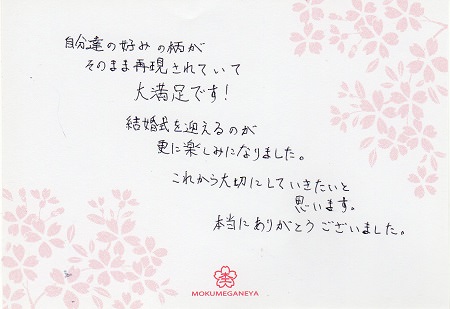 自分達の好みの柄が
そのまま再現されていて
大満足です！
結婚式を迎えるのが
更に楽しみになりました。
これから大切にしていきたいと
思います。
本当にありがとうございました。
MOKUMEGANEYA